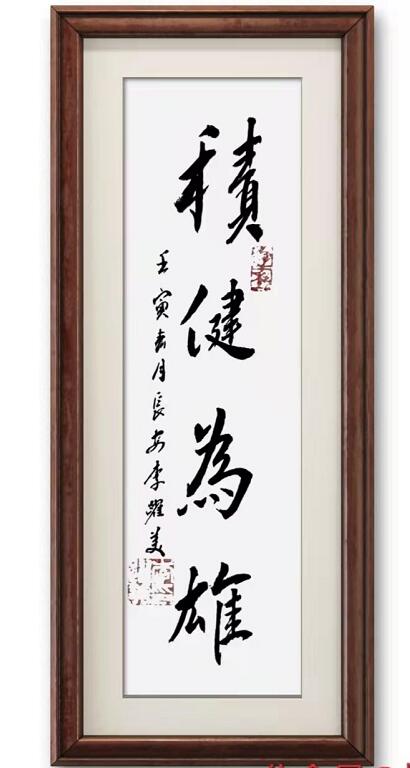 積健為雄
壬寅春月長安李耀美